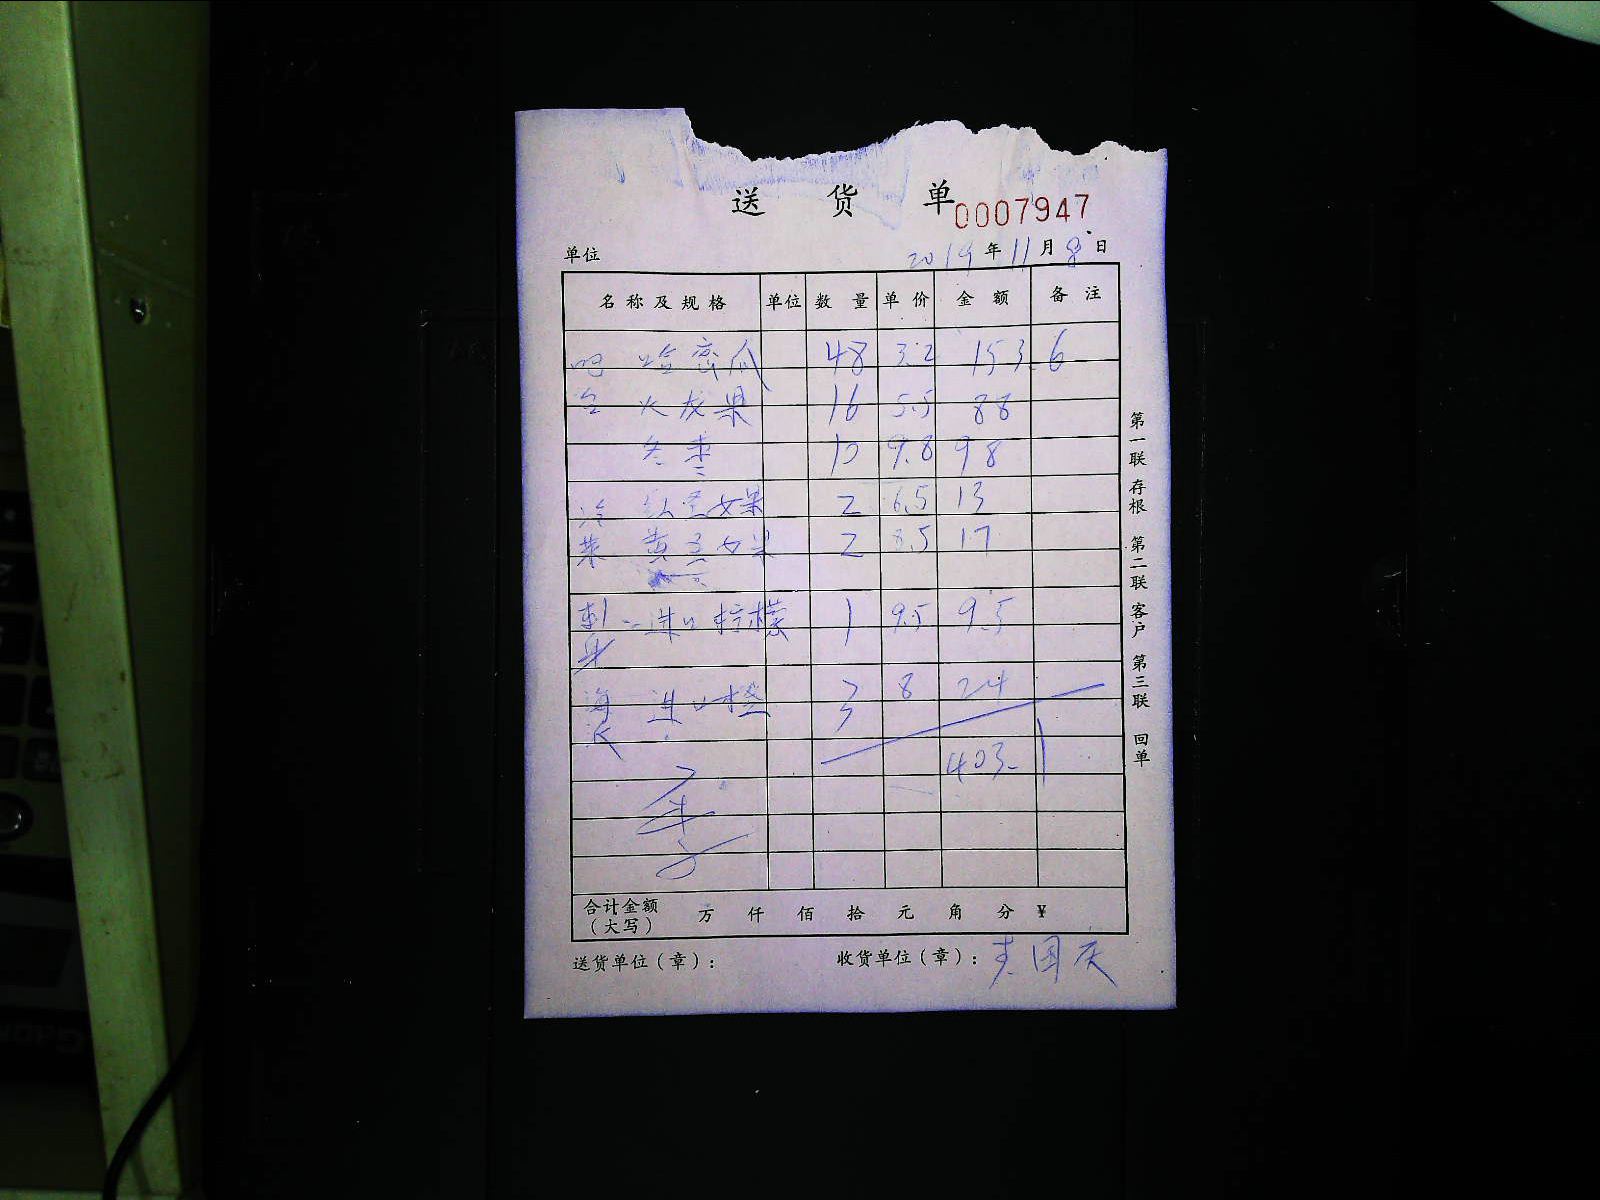 送 货 单 0007947
单位 2019 年 11 月 8 日
名称及规格 单位 数量 单价 金额 备注
吧 哈密瓜 48 3.2 153.6
台 火龙果 16 5.5 88
冬枣 10 9.8 98
冷 红圣女果 2 6.5 13
菜 黄圣女果 2 8.5 17
刺身 进口柠檬 1 9.5 9.5
进口橙 3 8 24
403.1
合计金额(大写) 万 仟 佰 拾 元 角 分 ¥
送货单位(章): 收货单位(章): 国庆
第一联 存根 第二联 客户 第三联 回单